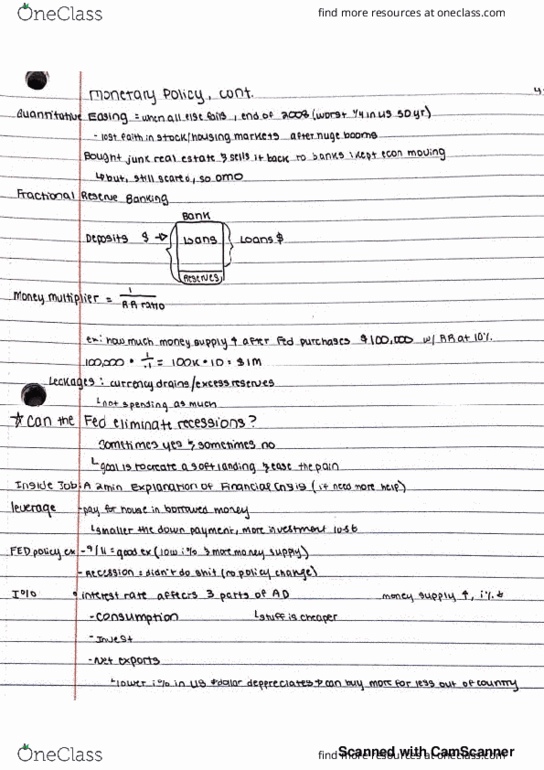 OneClass
find more resources at oneclass.com
Monetary Policy, cont.
4
Quantitative Easing = when all else fails, end of 2008 (worst 1/4 in US 50 yr)
- lost faith in stock/housing markets after huge booms
Bought junk real estate & sells it back to banks, kept econ moving
↳ but, still scared, so OMO
Fractional Reserve Banking
Bank
Deposits $ → Loans Loans $
Reserves
Money multiplier = 1
RR ratio
ex: how much money supply ↑ after Fed purchases $100,000 w/ RR at 10%
100,000 • 1/.1 = 100K • 10 = $1M
Leakages: currency drains/excess reserves
↳ not spending as much
☆ Can the Fed eliminate recessions?
Sometimes yes & sometimes no
↳ goal is to create a soft landing & ease the pain
Inside Job: A 2min Explanation of Financial Crisis (if need more help)
leverage - pay for house in borrowed money
↳ smaller the down payment, more investment lost
FED policy ex - 9/11 = good ex (low i% & more money supply)
- Recession = didn't do shit (no policy change)
• interest rate affects 3 parts of AD money supply ↑, i% ↓
- Consumption ↳ stuff is cheaper
- Invest
- Net exports
↳ lower i% in US → dolar deppreciates → can buy more for less out of country
OneClass
find more resources at oneclass.com
Scanned with CamScanner